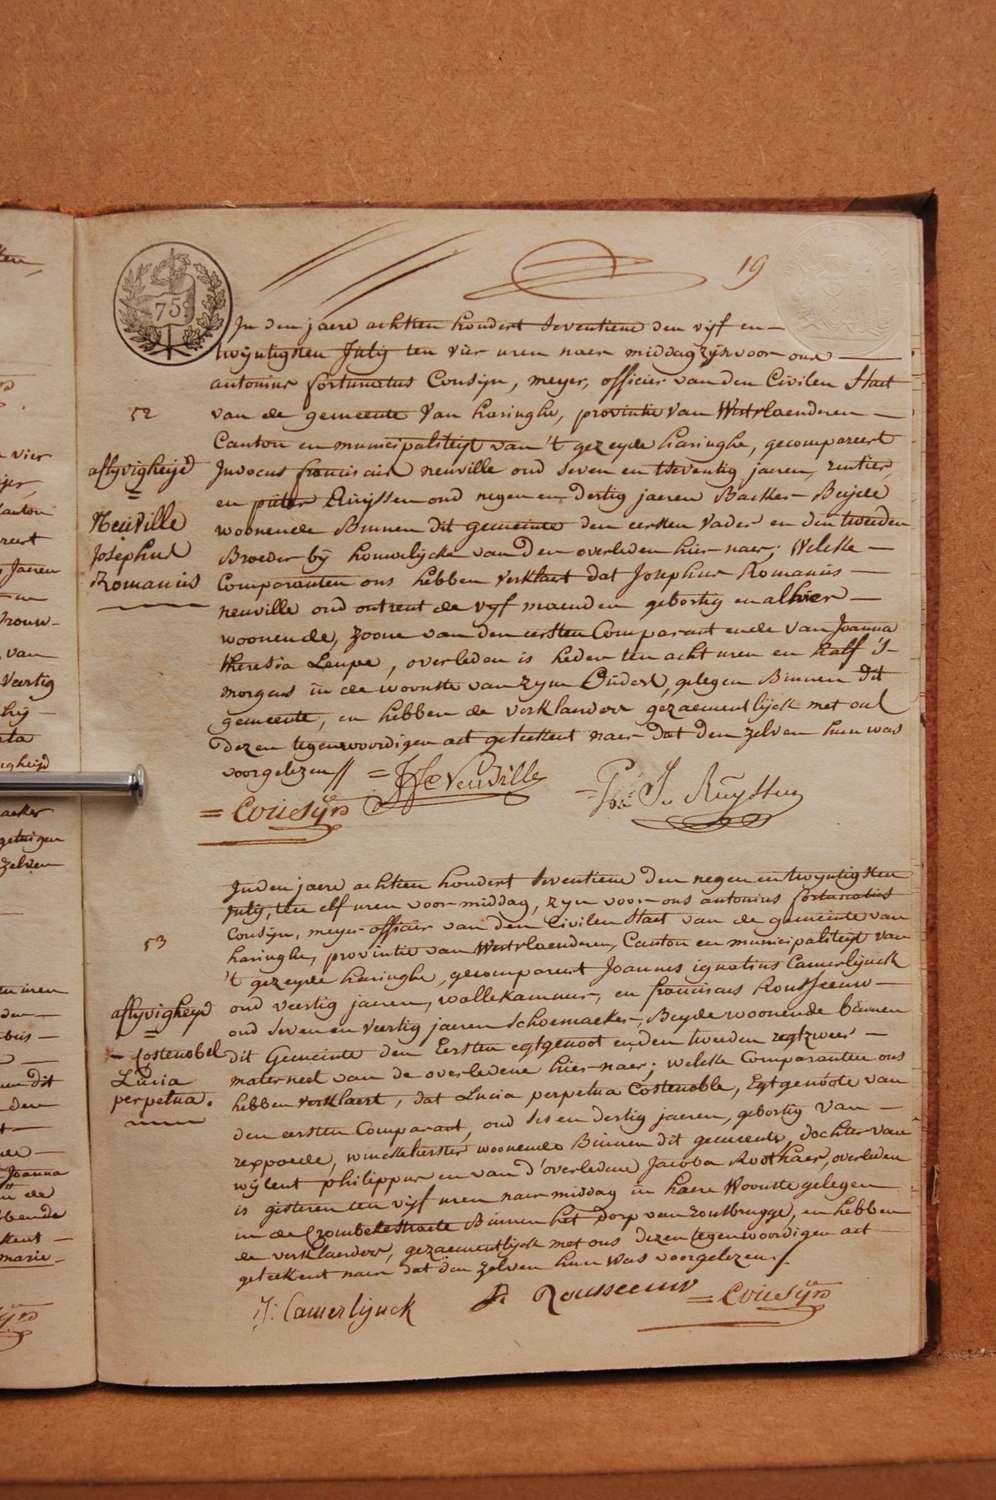 19
75
In den jaere achtien hondert seventiene den vijf en-
twijntigsten July ten vier uren naer middag zijn voor ons
antonius fortunatus Cousijn, meyer, officier van den Civilen Staet
52
van de gemeente van haringhe, provintie van Westvlaenderen -
Canton en municipaliteijt van 't gezeyde haringhe, gecompareert
aflyvigheijd
Judocus franciscus neuville oud seven en tseventig jaeren, rentier,
en pieter Ruijssen oud negen en dertig jaeren Backer - Beijde
Neuville
woonende Binnen dit gemeente den eersten vader en den tweeden
Josephus
Broeder bij houwelijcke van den overleden hier naer; Welcke -
Romanus
Comparanten ons hebben verklaert dat Josephus Romanus -
neuville oud ontrent de vijf maenden gebortig en alhier -
woonende, zoone van den eersten Comparant ende van Joanna
theresia Leupe, overleden is heden ten acht uren en half 's-
morgens in de woonste van zyn Ouders, gelegen Binnen dit
gemeente, en hebben de verklaerders gezaementlijck met ons
dezen tegenwoordigen act geteekent naer dat den zelven hun was
voorgelezen //
= J Neuville
P: J. Ruijssen
= Cousijn
Inden jaere achtien hondert seventiene den negen en twijntigsten
July, ten elf uren voor middag, zyn voor ons antonius fortunatus
Cousijn, meyer officier van den Civilen Staet van de gemeente van
53
haringhe, provintie van Westvlaenderen, Canton en municipaliteijt van
't gezeyde haringhe, gecompareert Joannes ignatius Camerlijnck
aflyvigheyd
oud veertig jaeren, wollekammer, en franciscus Rousseeuw -
oud seven en veertig jaeren Schoemaeker, Beyde woonende binnen
- Costenobel
dit Gemeente den Eersten egtgenoot enden tweeden regtzweer -
Lucia
materneel van de overledene hier naer; welcke Comparanten ons
perpetua.
hebben verklaert, dat Lucia perpetua Costenoble, Egtgenóote van
den eersten Comparant, oud ses en dertig jaeren, gebortig van -
rexpoede, winckelierster woonende Binnen dit gemeente, dochter van
wylent philippus en van d'overledene Jacoba Roothaer, overleden
is gisteren ten vijf uren naer middag in haere Woonste gelegen
in de Crombekestraete Binnen het Dorp van rousbrugge, en hebben
de verklaerders, gezaementlijck met ons dezen tegenwoordigen act -
geteekent naer dat den zelven hun was voorgelezen. /.
J: Camerlijnck
Rousseeuw
= Cousijn